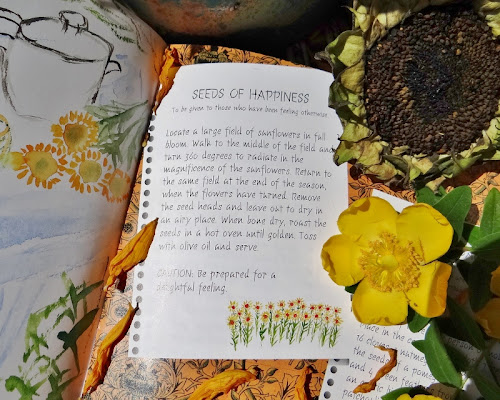 SEEDS OF HAPPINESS
To be given to those who have been feeling otherwise
Locate a large field of sunflowers in full
bloom. Walk to the middle of the field and
turn 360 degrees to radiate in the
magnificence of the sunflowers. Return to
the same field at the end of the season,
when the flowers have turned. Remove
the seed heads and leave out to dry in
an airy place. When bone dry, roast the
seeds in a hot oven until golden. Toss
with olive oil and serve.
CAUTION: Be prepared for a
delightful feeling.
Place in the
16 cloves
the seeds a
and 4
an